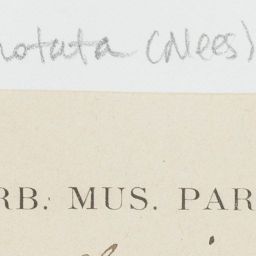 notata (Nees)
RB. MUS. PAR